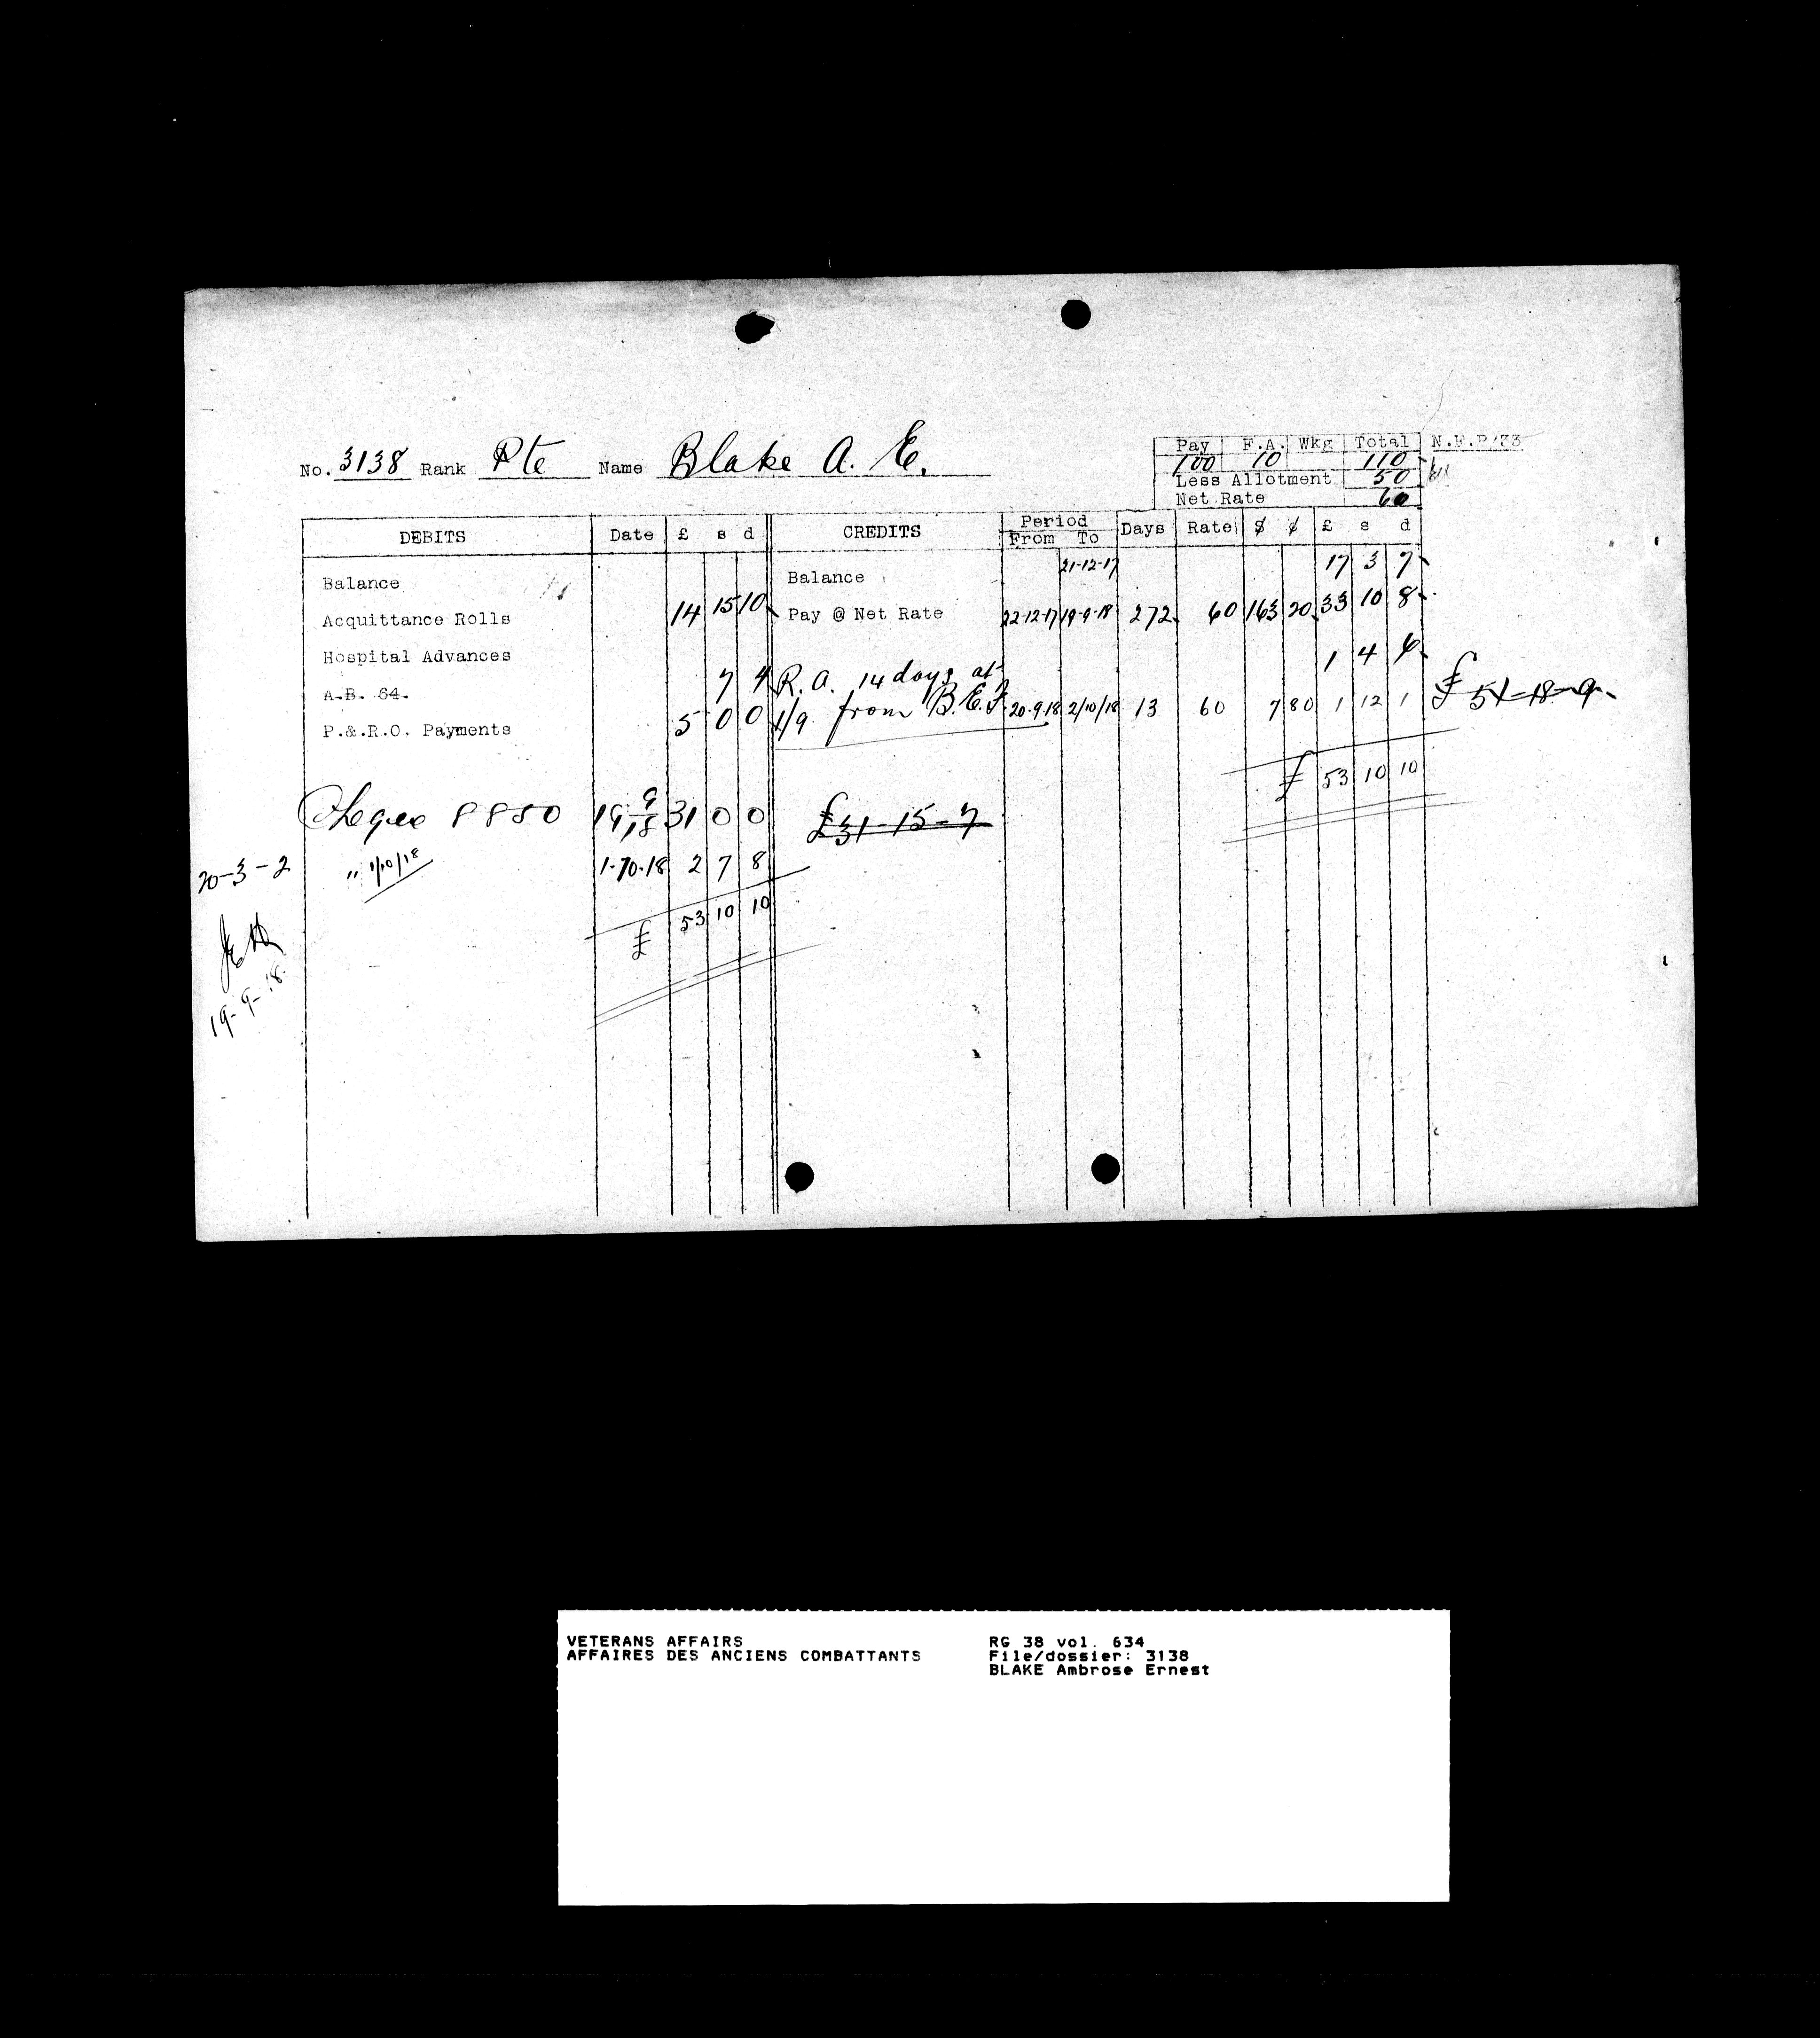 No. 3138 Rank Pte Name Blake A. E.
Pay F.A. Wkg Total N.F.P/33
100 10 110
Less Allotment 50
Net Rate 60
DEBITS Date £ s d CREDITS Period From To Days Rate $ ¢ £ s d
Balance Balance 21-12-17 17 3 7
Acquittance Rolls 14 15 10 Pay @ Net Rate 22-12-17 19-9-18 272 60 163 20 33 10 8
Hospital Advances 1 4 6
A.B. 64. 7 4 R.A. 14 days at
P.&.R.O. Payments 5 0 0 1/9 from B.E.F 20.9.18 2/10/18 13 60 7 80 1 12 1 £ 51-18-9
£ 53 10 10
Cheque 8850 19/9/18 31 0 0 £31-15-7
20-3-2 " 1/10/18 1-10-18 2 7 8
£ 53 10 10
19-9-18.
VETERANS AFFAIRS
AFFAIRES DES ANCIENS COMBATTANTS
RG 38 vol. 634
File/dossier: 3138
BLAKE Ambrose Ernest